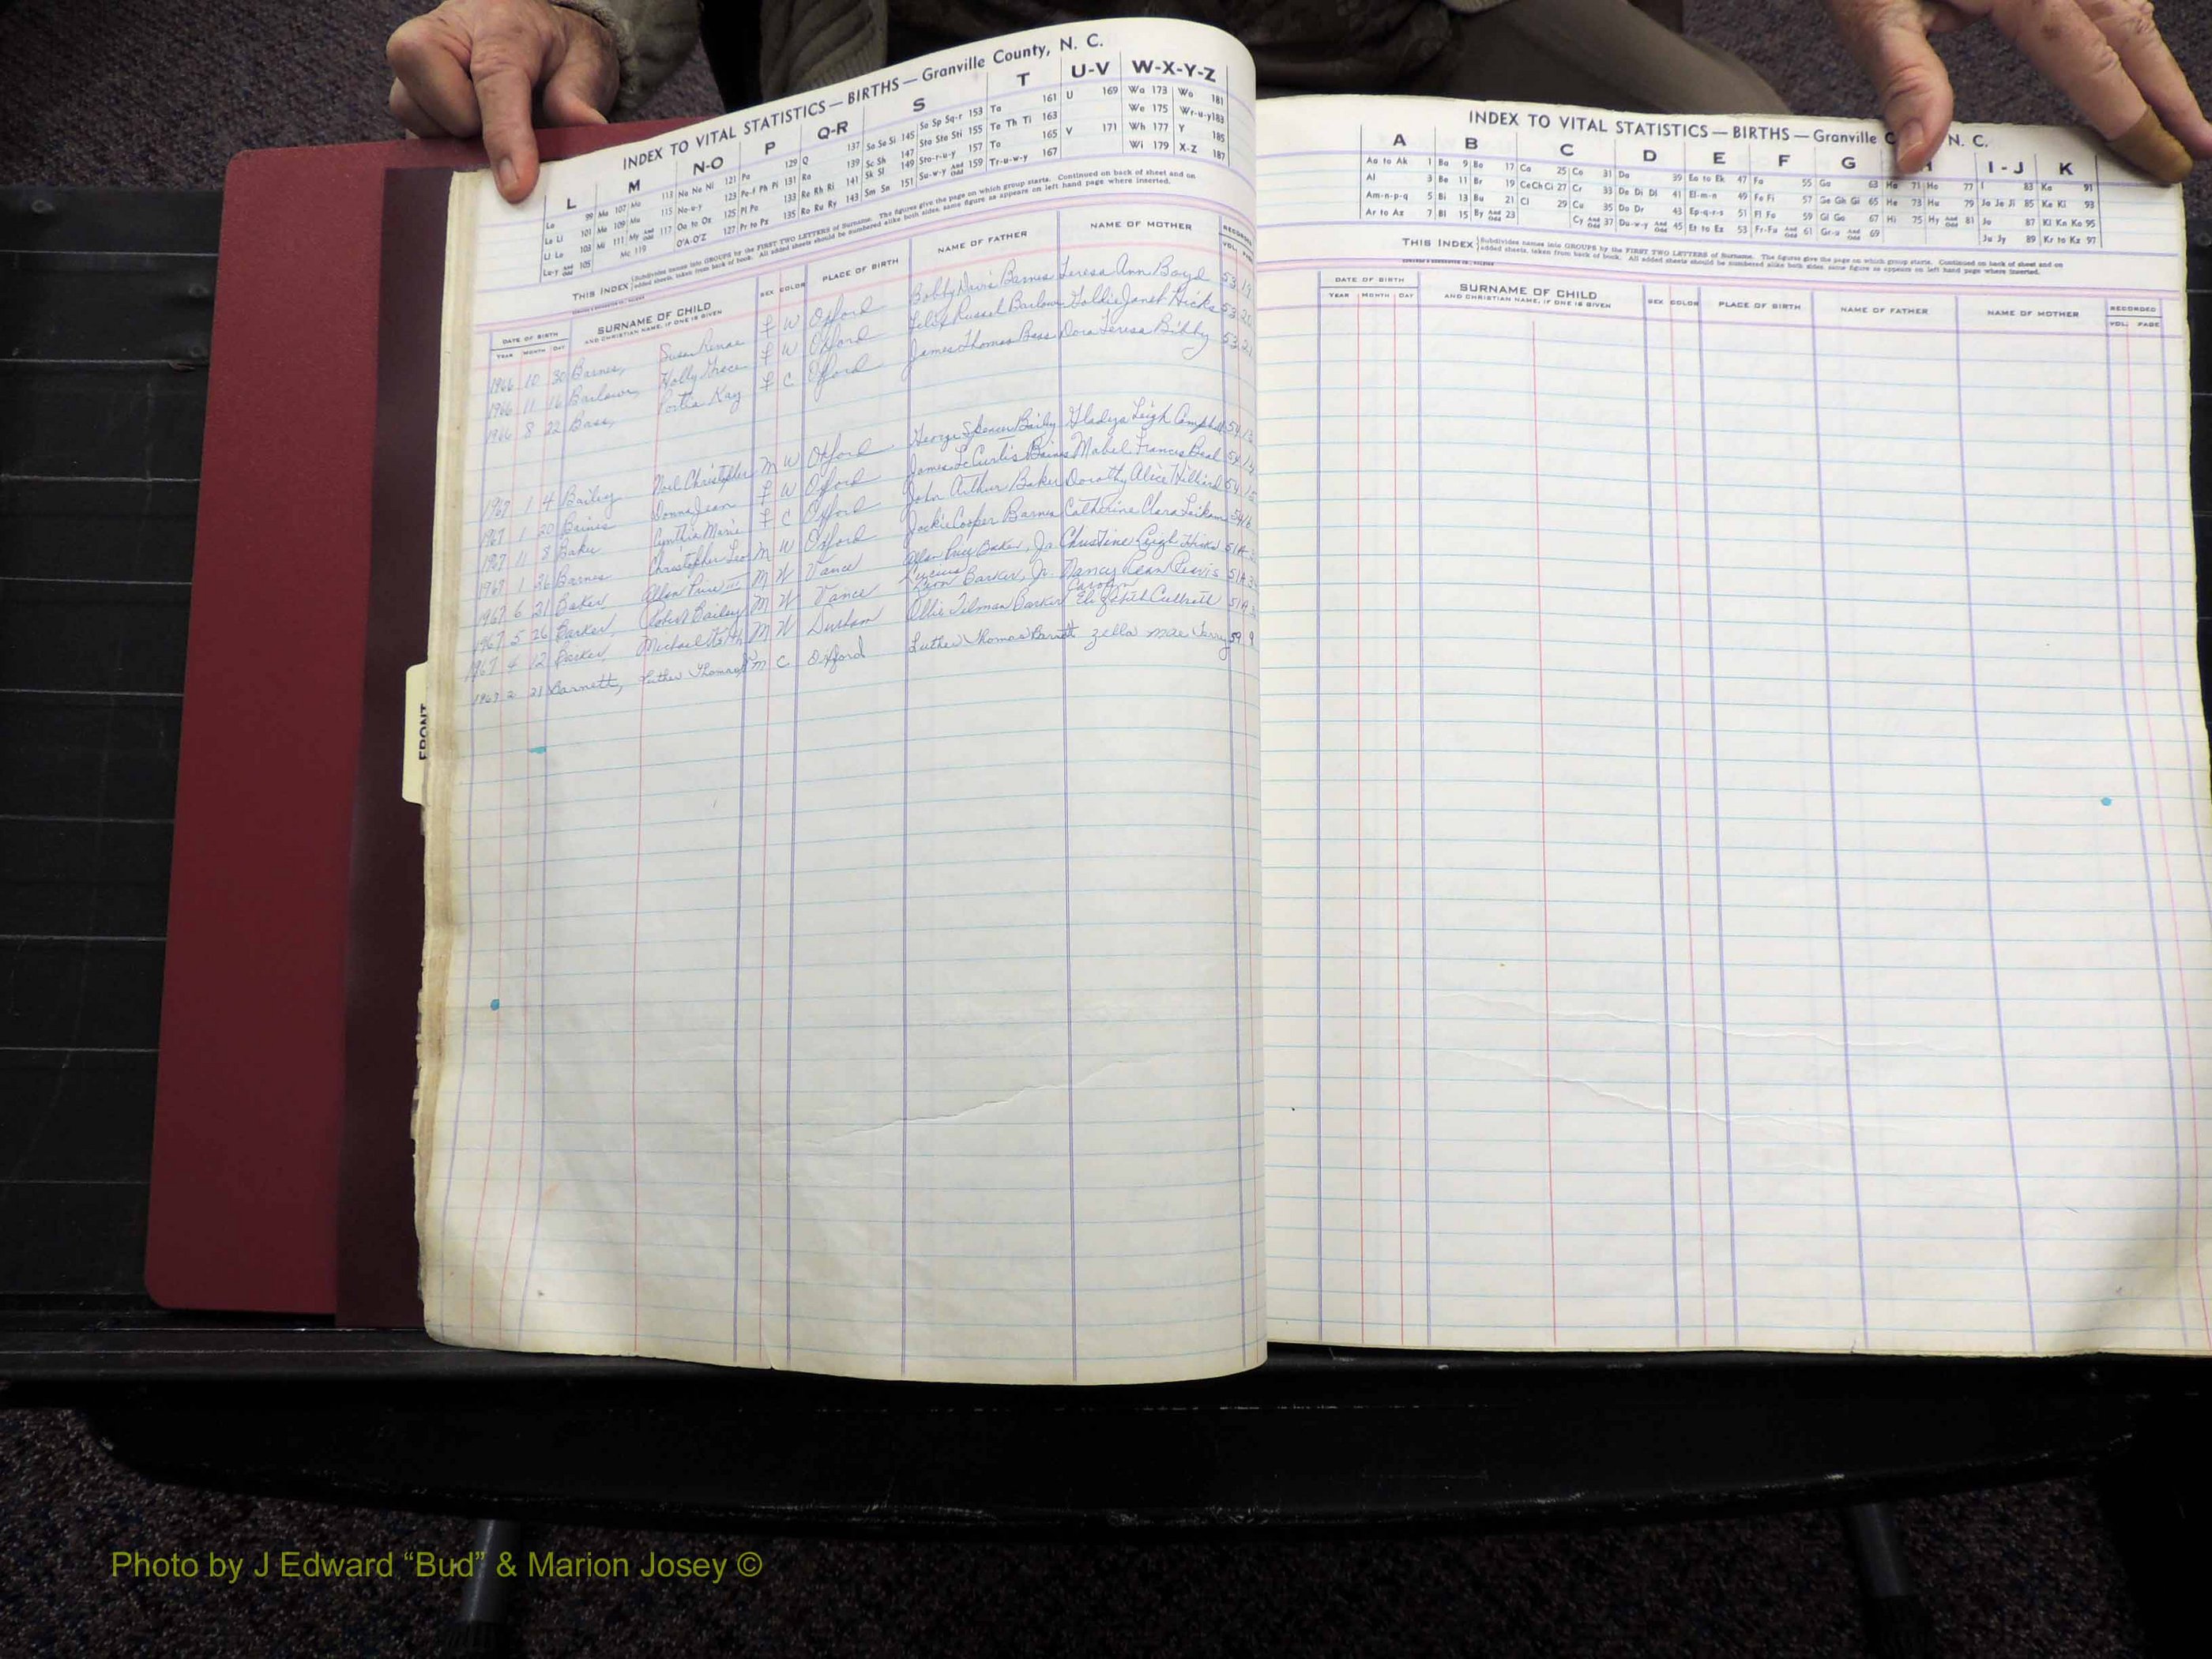 INDEX TO VITAL STATISTICS — BIRTHS — Granville County, N. C.
L M N-O P Q-R S T U-V W-X-Y-Z
La 99 Ma 107 Mo 113 Na Ne Ni 121 Pa 129 Q 137 Sa Se Si 145 So Sp Sq-r 153 Ta 161 U 169 Wa 173 Wo 181
Le Li 101 Me 109 Mu 115 No-u-y 123 Pe-f Ph Pi 131 Ra 139 Sc Sh 147 Sta Ste Sti 155 Te Th Ti 163 We 175 Wr-u-y 183
Ll Lo 103 Mi 111 My And Odd 117 Oa to Oz 125 Pl Po 133 Re Rh Ri 141 Sk Sl 149 Sto-r-u-y 157 To 165 V 171 Wh 177 Y 185
Lu-y And Odd 105 Mc 119 O'A-O'Z 127 Pr to Ps 135 Ro Ru Ry 143 Sm Sn 151 Su-w-y And Odd 159 Tr-u-w-y 167 Wi 179 X-Z 187
THIS INDEX Subdivides names into GROUPS by the FIRST TWO LETTERS of Surname. The figures give the page on which group starts. Continued on back of sheet and on
added sheets, taken from back of book. All added sheets should be numbered alike both sides, same figure as appears on left hand page where inserted.
DATE OF BIRTH SURNAME OF CHILD SEX COLOR PLACE OF BIRTH NAME OF FATHER NAME OF MOTHER RECORDED
YEAR MONTH DAY AND CHRISTIAN NAME, IF ONE IS GIVEN VOL.
1966 10 30 Barnes, Susan Renae F W Oxford Bobby Davis Barnes Teresa Ann Boyd 53
1966 11 16 Barlowe, Holly Grace F W Oxford Felix Russel Barlowe Goldie Janet Hicks 53
1966 8 22 Bass, Portia Kay F C Oxford James Thomas Bass Dora Teresa Bibby 53
1967 1 4 Bailey Noel Christopher M W Oxford George Spencer Bailey Gladys Leigh Campbell 54
1967 1 20 Baines Donna Jean F W Oxford James LeCurtis Baines Mabel Frances Beal 54
1967 11 8 Baker Cynthia Marie F C Oxford John Arthur Baker Dorothy Alice Hilliard 54
1967 1 26 Barnes Christopher Leo M W Oxford Jackie Cooper Barnes Catherine Clara 54
1967 6 21 Baker Allen Price III M W Vance Allen Price Baker, Jr Christine Leigh Hicks 51A
1967 5 26 Barker, Robert Bailey M W Vance Lucius Leon Barker, Jr. Nancy Jean 51A
1967 4 12 Barker, Michael Keith M W Durham Ollie Tilman Barker Carolyn Elizabeth 51A
1963 2 21 Barnett, Luther Thomas M C Oxford Luther Thomas Barnett Zella Mae Terry 59 9
FRONT
INDEX TO VITAL STATISTICS — BIRTHS — Granville C N. C.
A B C D E F G H I-J K
Aa to Ak 1 Ba 9 Bo 17 Ca 25 Co 31 Da 39 Ea to Ek 47 Fa 55 Ga 63 Ha 71 Ho 77 I 83 Ka 91
Al 3 Be 11 Br 19 Ce Ch Ci 27 Cr 33 De Di Dl 41 El-m-n 49 Fe Fi 57 Ge Gh Gi 65 He 73 Hu 79 Ja Je Ji 85 Ke Ki 93
Am-n-p-q 5 Bi 13 Bu 21 Cl 29 Cu 35 Do Dr 43 Ep-q-r-s 51 Fl Fo 59 Gl Go 67 Hi 75 Hy And Odd 81 Jo 87 Kl Kn Ko 95
Ar to Az 7 Bl 15 By And Odd 23 Cy And Odd 37 Du-w-y And Odd 45 Et to Ez 53 Fr-Fu And Odd 61 Gr-u And Odd 69 Ju Jy 89 Kr to Kz 97
THIS INDEX Subdivides names into GROUPS by the FIRST TWO LETTERS of Surname. The figures give the page on which group starts. Continued on back of sheet and on
added sheets, taken from back of book. All added sheets should be numbered alike both sides, same figure as appears on left hand page where inserted.
DATE OF BIRTH SURNAME OF CHILD SEX COLOR PLACE OF BIRTH NAME OF FATHER NAME OF MOTHER RECORDED
YEAR MONTH DAY AND CHRISTIAN NAME, IF ONE IS GIVEN VOL. PAGE
Photo by J Edward “Bud” & Marion Josey ©